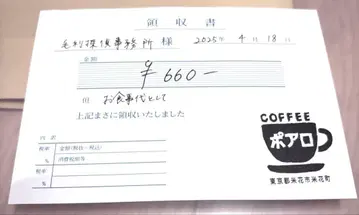 領収書
毛利探偵事務所 様 2025年4月18日
金額
¥660-
但 お食事代として
上記まさに領収いたしました
内訳
税率 金額(税抜・税込)
% 消費税額等
税率
%
COFFEE
ポアロ
東京都米花市米花町